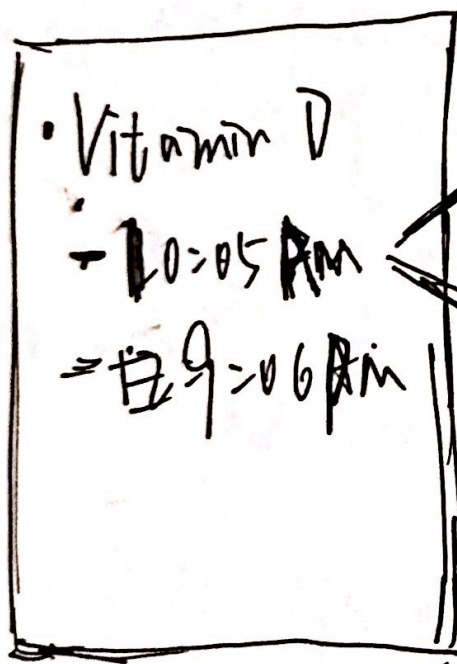 · Vitamin D
- 10:05 AM
- 9:06 AM